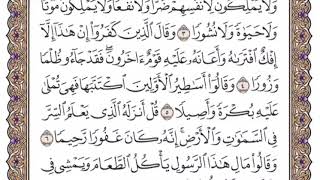 وَلَا يَمْلِكُونَ لِأَنفُسِهِمْ ضَرًّا وَلَا نَفْعًا وَلَا يَمْلِكُونَ مَوْتًا
وَلَا حَيَوٰةً وَلَا نُشُورًا ٣ وَقَالَ الَّذِينَ كَفَرُوٓا۟ إِنْ هَٰذَآ إِلَّآ
إِفْكٌ ٱفْتَرَىٰهُ وَأَعَانَهُۥ عَلَيْهِ قَوْمٌ ءَاخَرُونَ ۖ فَقَدْ جَآءُو ظُلْمًا
وَزُورًا ٤ وَقَالُوٓا۟ أَسَٰطِيرُ ٱلْأَوَّلِينَ ٱكْتَتَبَهَا فَهِىَ تُمْلَىٰ
عَلَيْهِ بُكْرَةً وَأَصِيلًا ٥ قُلْ أَنزَلَهُ ٱلَّذِى يَعْلَمُ ٱلسِّرَّ
فِى ٱلسَّمَٰوَٰتِ وَٱلْأَرْضِ ۚ إِنَّهُۥ كَانَ غَفُورًا رَّحِيمًا ٦
وَقَالُوا۟ مَالِ هَٰذَا ٱلرَّسُولِ يَأْكُلُ ٱلطَّعَامَ وَيَمْشِى فِى